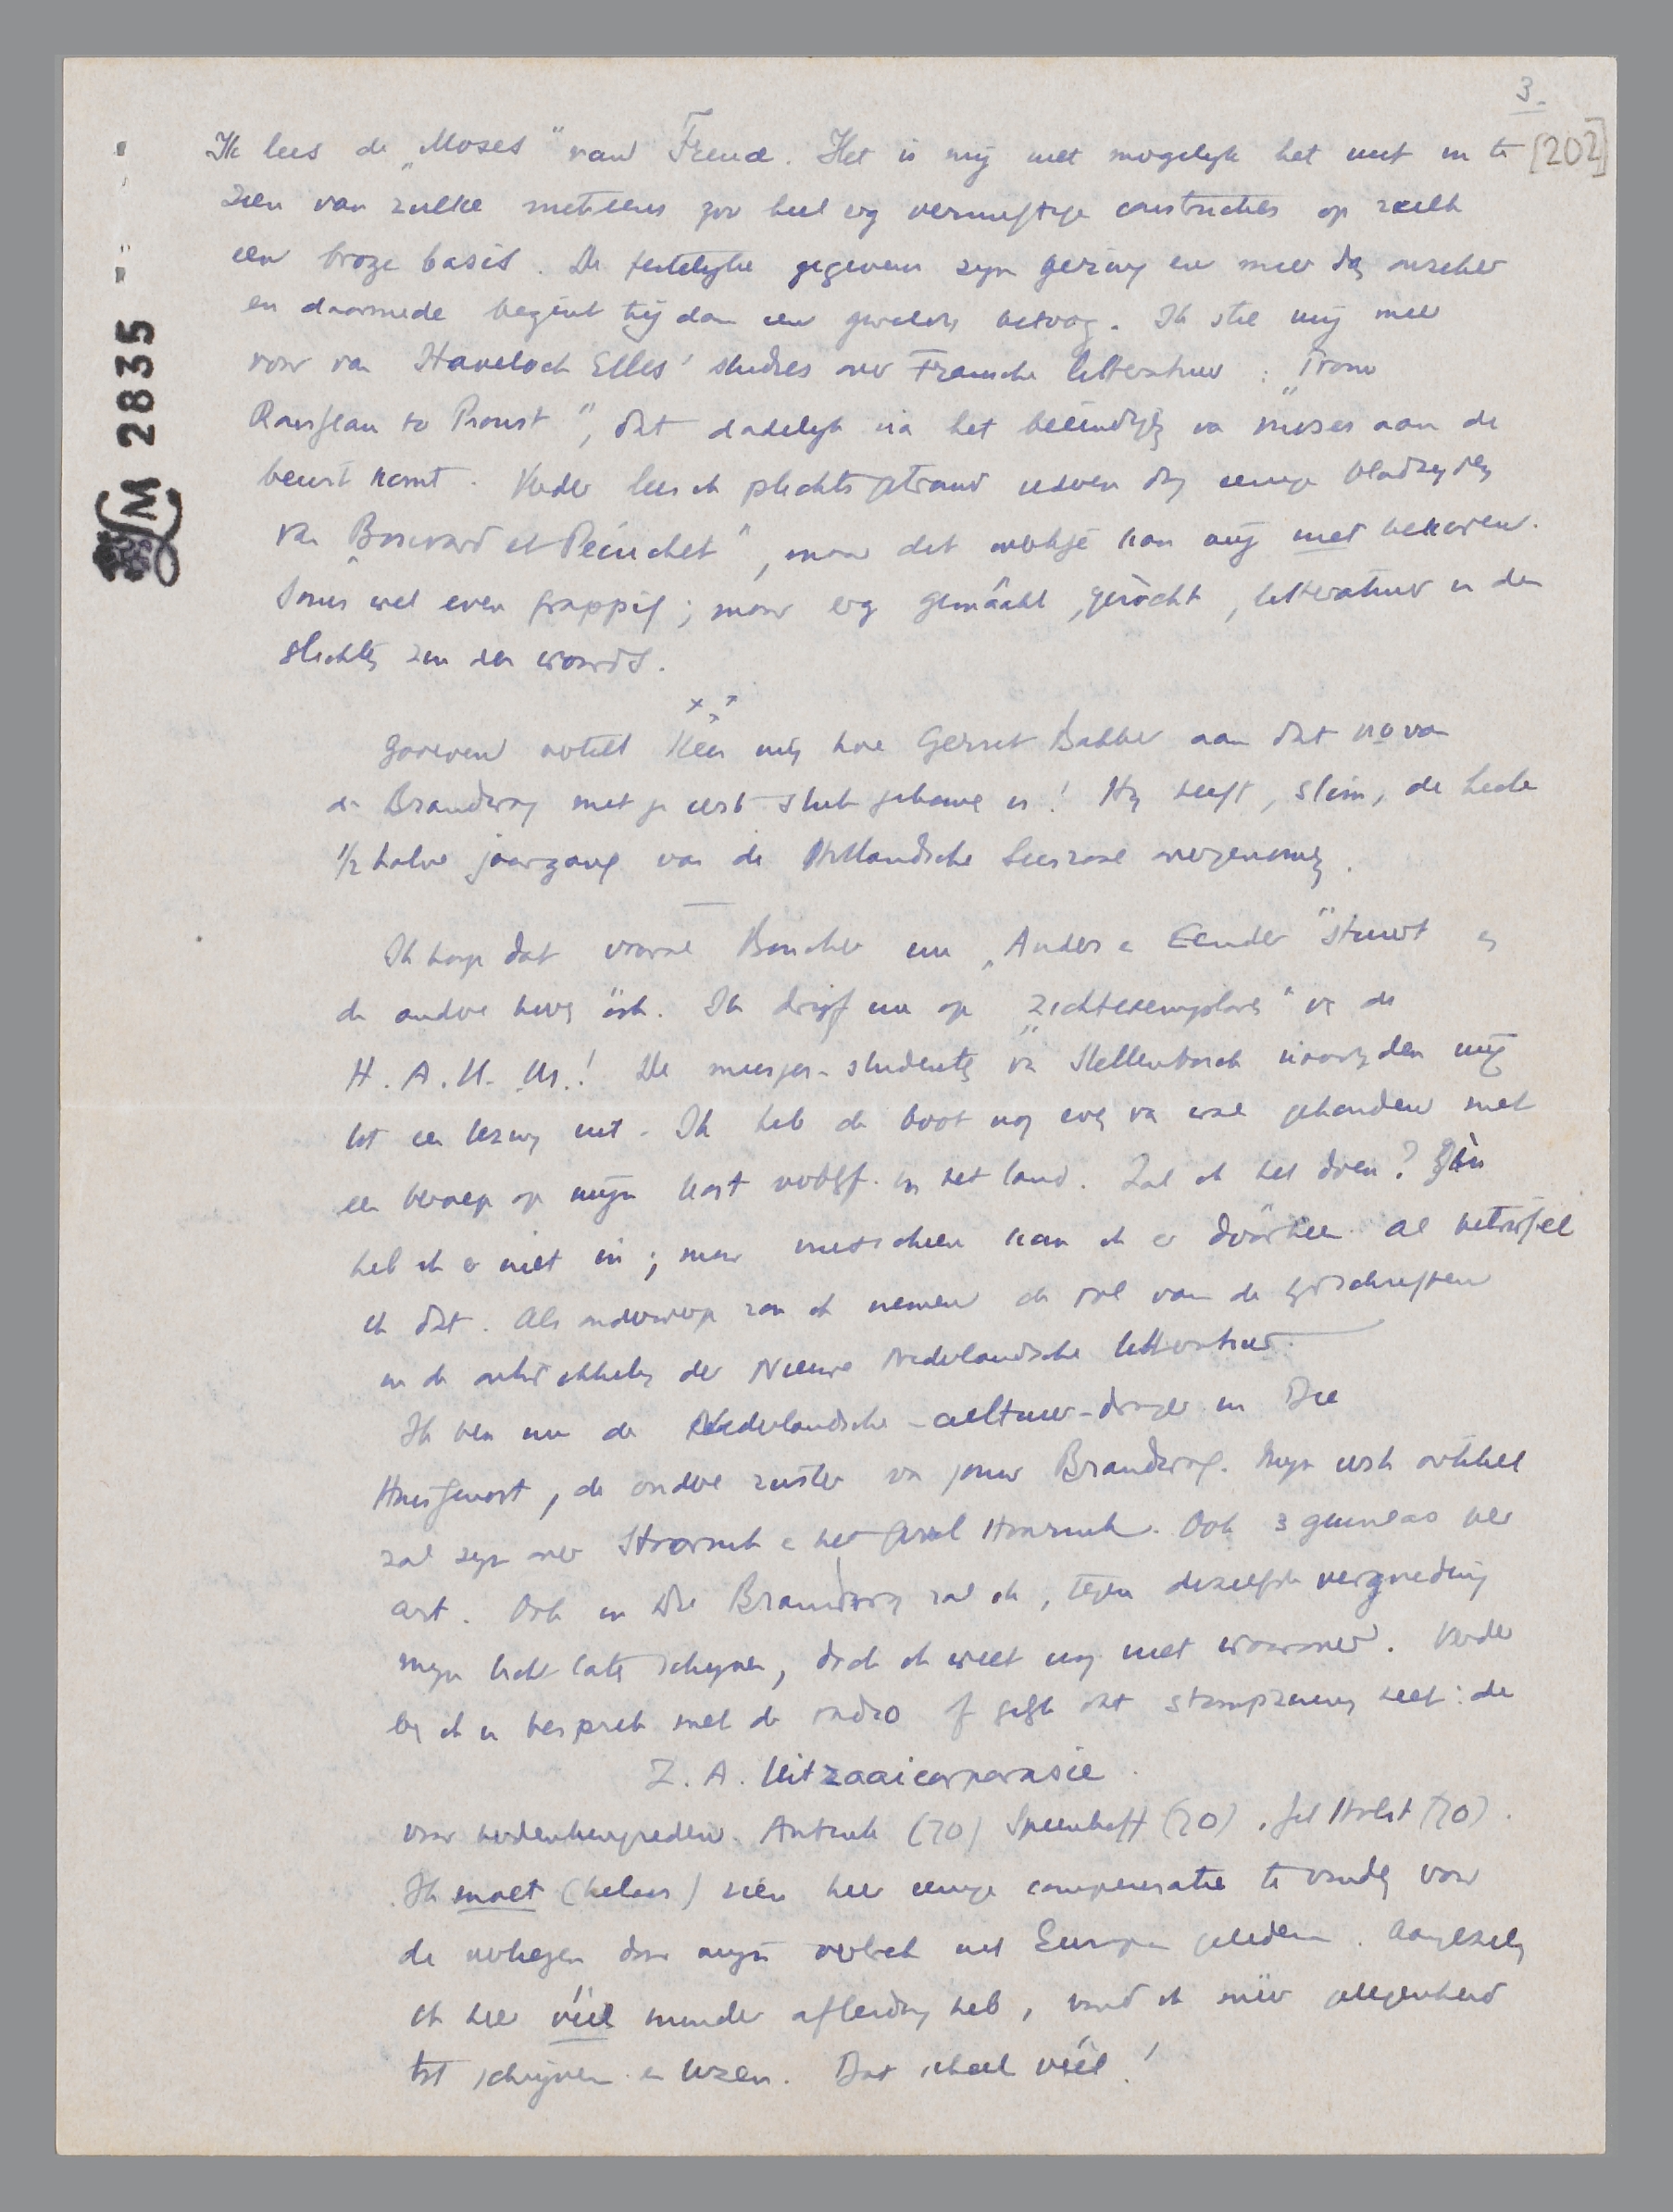 3.
[202]
Ik lees de „Moses" van Freud. Het is mij niet mogelijk het nut in te
zien van zulke meteens zoo heel erg vernuftige constructies op zulk
een broze basis. De feitelijke gegevens zijn gering en meerdg onzeker
en daarmede begint hij dan een geweldig betoog. Ik stel mij meer
voor van Havelock Ellis' studies over Fransche litteratuur : „From
Rousseau to Proust", dat dadelijk na het beëindigen van Moses aan de
beurt komt. Verder lees ik plichtsgetrouw iederen dag eenige bladzijden
van „Bouvard et Pécuchet", maar dat werkje kan mij niet bekoren.
Soms wel even grappig; maar erg gemáákt, gezócht, litteratuur in den
slechten zin den woords.
x x x
Gareven vertelt Kees mij hoe Gerrit Bakker aan dat no van
de Brandwag met je eerste stuk gekomen is! Hij heeft, slim, de heele
1/2 halve jaargang van de Hollandsche Leeszaal overgenomen.
Ik hoop dat vooral Boucher nu „Anders en Eender" stuurt en
de andere heeren óók. Ik drijf nu op „zichtexemplaren" van de
H.A.U.M.! De meisjes-studenten van Stellenbosch noodigden mij
tot een lezing uit. Ik heb de boot nog even van wal gehouden met
een beroep op mijn kort verblijf in het land. Zal ik het doen? Zin
heb ik er niet in; maar misschien kan ik er dóórheen al betwijfel
ik dat. Als onderwerp zou ik nemen de rol van de tijdschriften
in de ontwikkeling der Nieuwe Nederlandsche litteratuur.
Ik ben nu de Nederlandsche-cultuur-drager in Die
Huisgenoot, de andere zuster van jouw Brandwag. Mijn eerste artikel
zal zijn over Stoornik en het geval Stoornik. Ook 3 guineas per
art. Ook in Die Brandwag zal ik, tegen dezelfde vergoeding
mijn licht laten schijnen, doch ik weet nog niet waarover. Verder
ben ik in bespreking met de radio of gelijk dat stamproevig heet: de
Z.A. Uitzaaicorporasie
voor verdenkingreden. Antink (70) Speenhoff (70), Jet Holst (70).
Ik moet (helaas) zien hier eenige compensatie te vinden voor
de verliezen door mijn vertrek uit Europa geleden. Aangezien
ik hier véél minder afleiding heb, vind ik méér gelegenheid
tot schrijven en lezen. Dat scheelt véél!
LM 2835